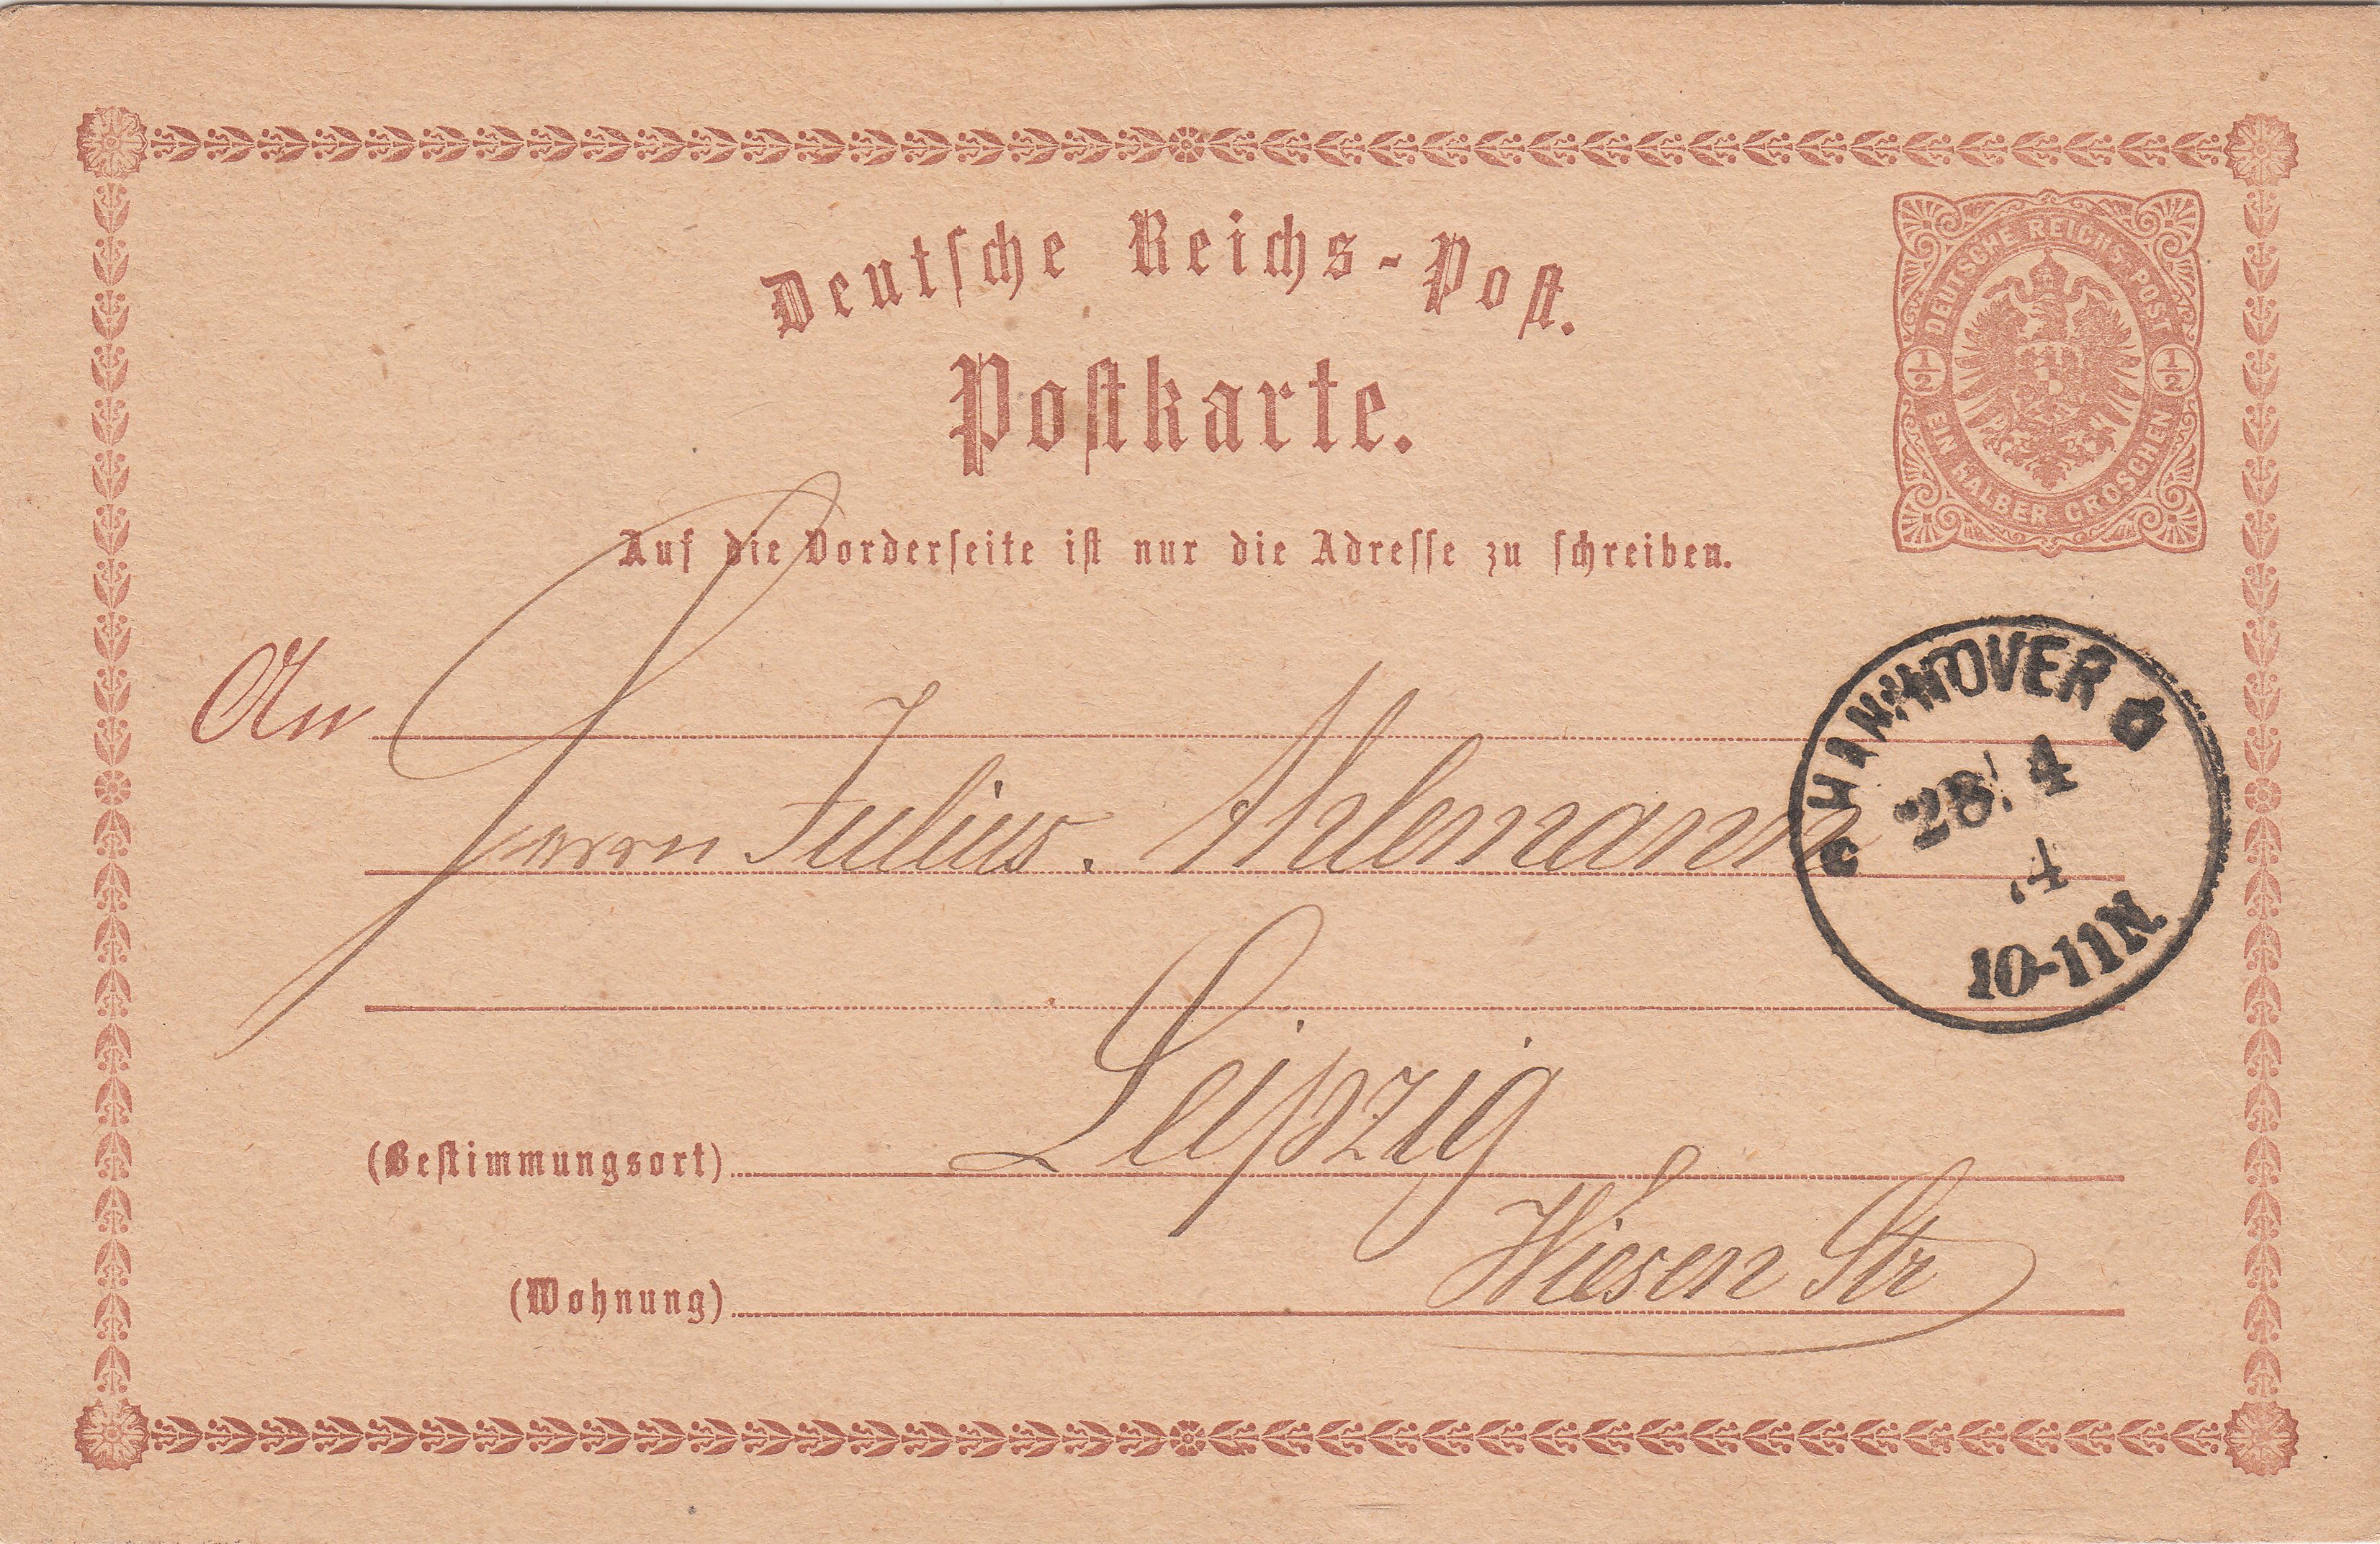 Deutsche Reichs-Post.
Postkarte.
DEUTSCHE REICHS-POST
1/2 1/2
EIN HALBER GROSCHEN
Auf die Vorderseite ist nur die Adresse zu schreiben.
An
Herrn Julius. Ahlemann
HANNOVER
28. 4
10-11N.
Leipzig
(Bestimmungsort)
Wiesen Str
(Wohnung)